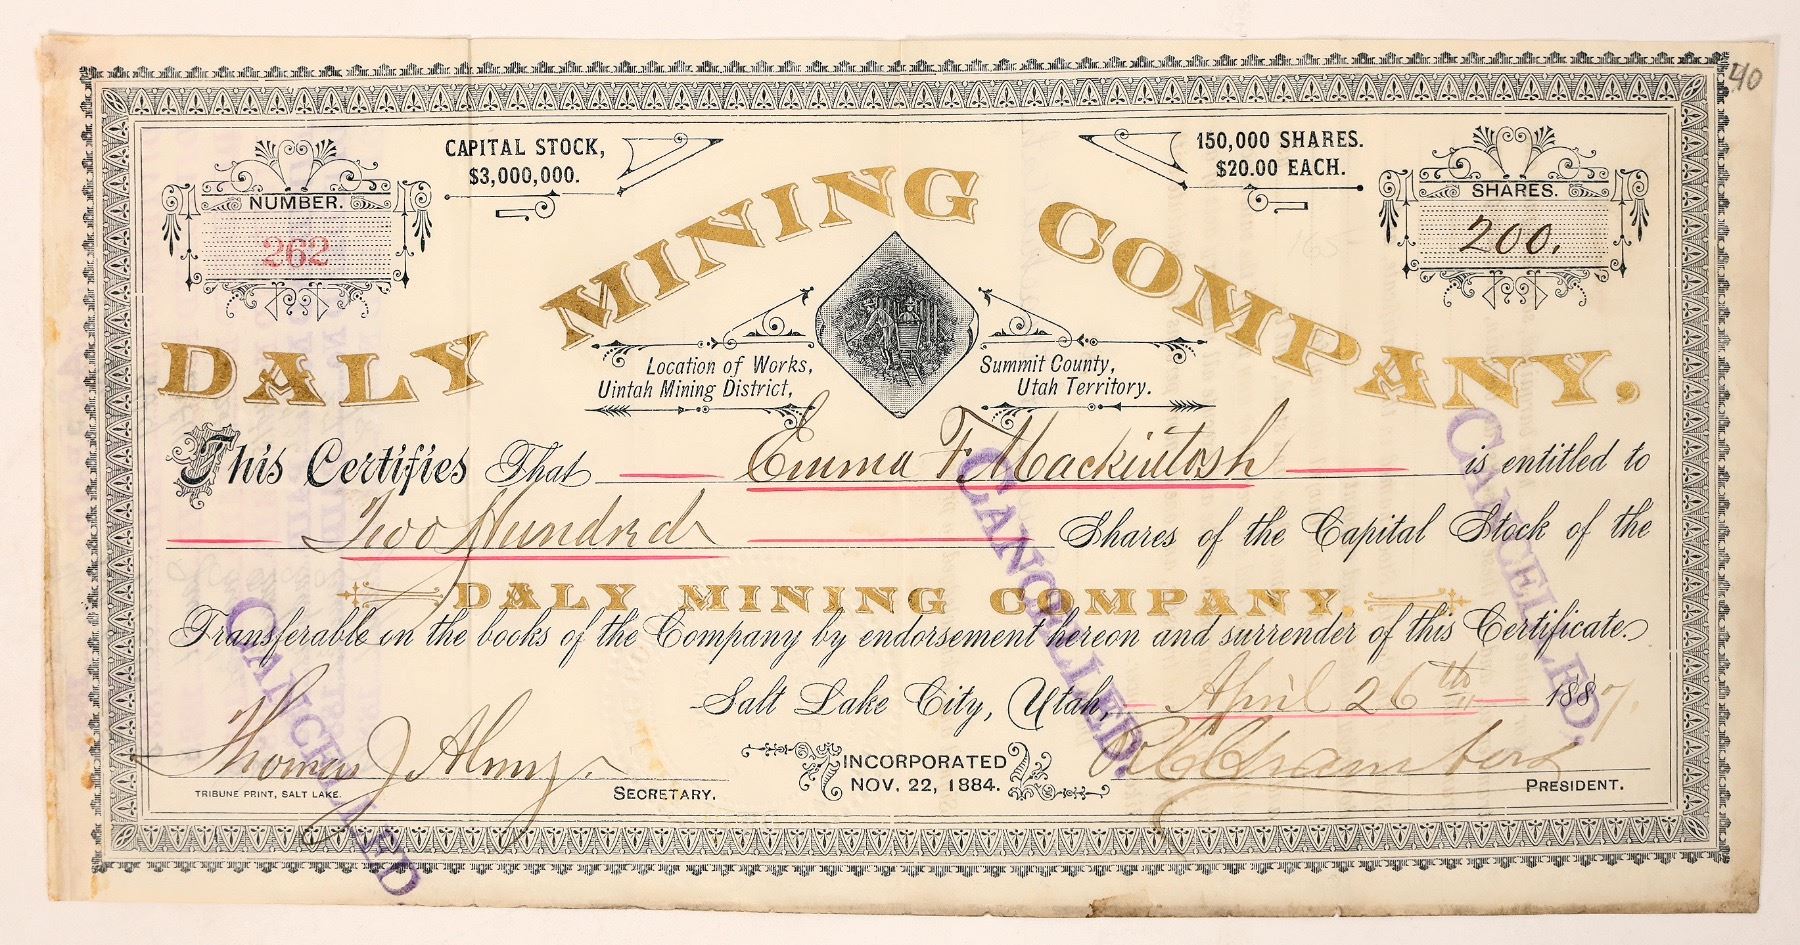 40
CAPITAL STOCK,
$3,000,000.
150,000 SHARES.
$20.00 EACH.
NUMBER.
262
SHARES.
200.
DALY MINING COMPANY.
Location of Works,
Uintah Mining District,
Summit County,
Utah Territory.
This Certifies That Emma F. Mackintosh is entitled to
Two Hundred Shares of the Capital Stock of the
DALY MINING COMPANY.
Transferable on the books of the Company by endorsement hereon and surrender of this Certificate.
Salt Lake City, Utah, April 26th 1887.
Thomas J Almy. R C Chambers
INCORPORATED
NOV. 22, 1884.
TRIBUNE PRINT, SALT LAKE.
SECRETARY.
PRESIDENT.
CANCELLED
CANCELLED.
CANCELLED.